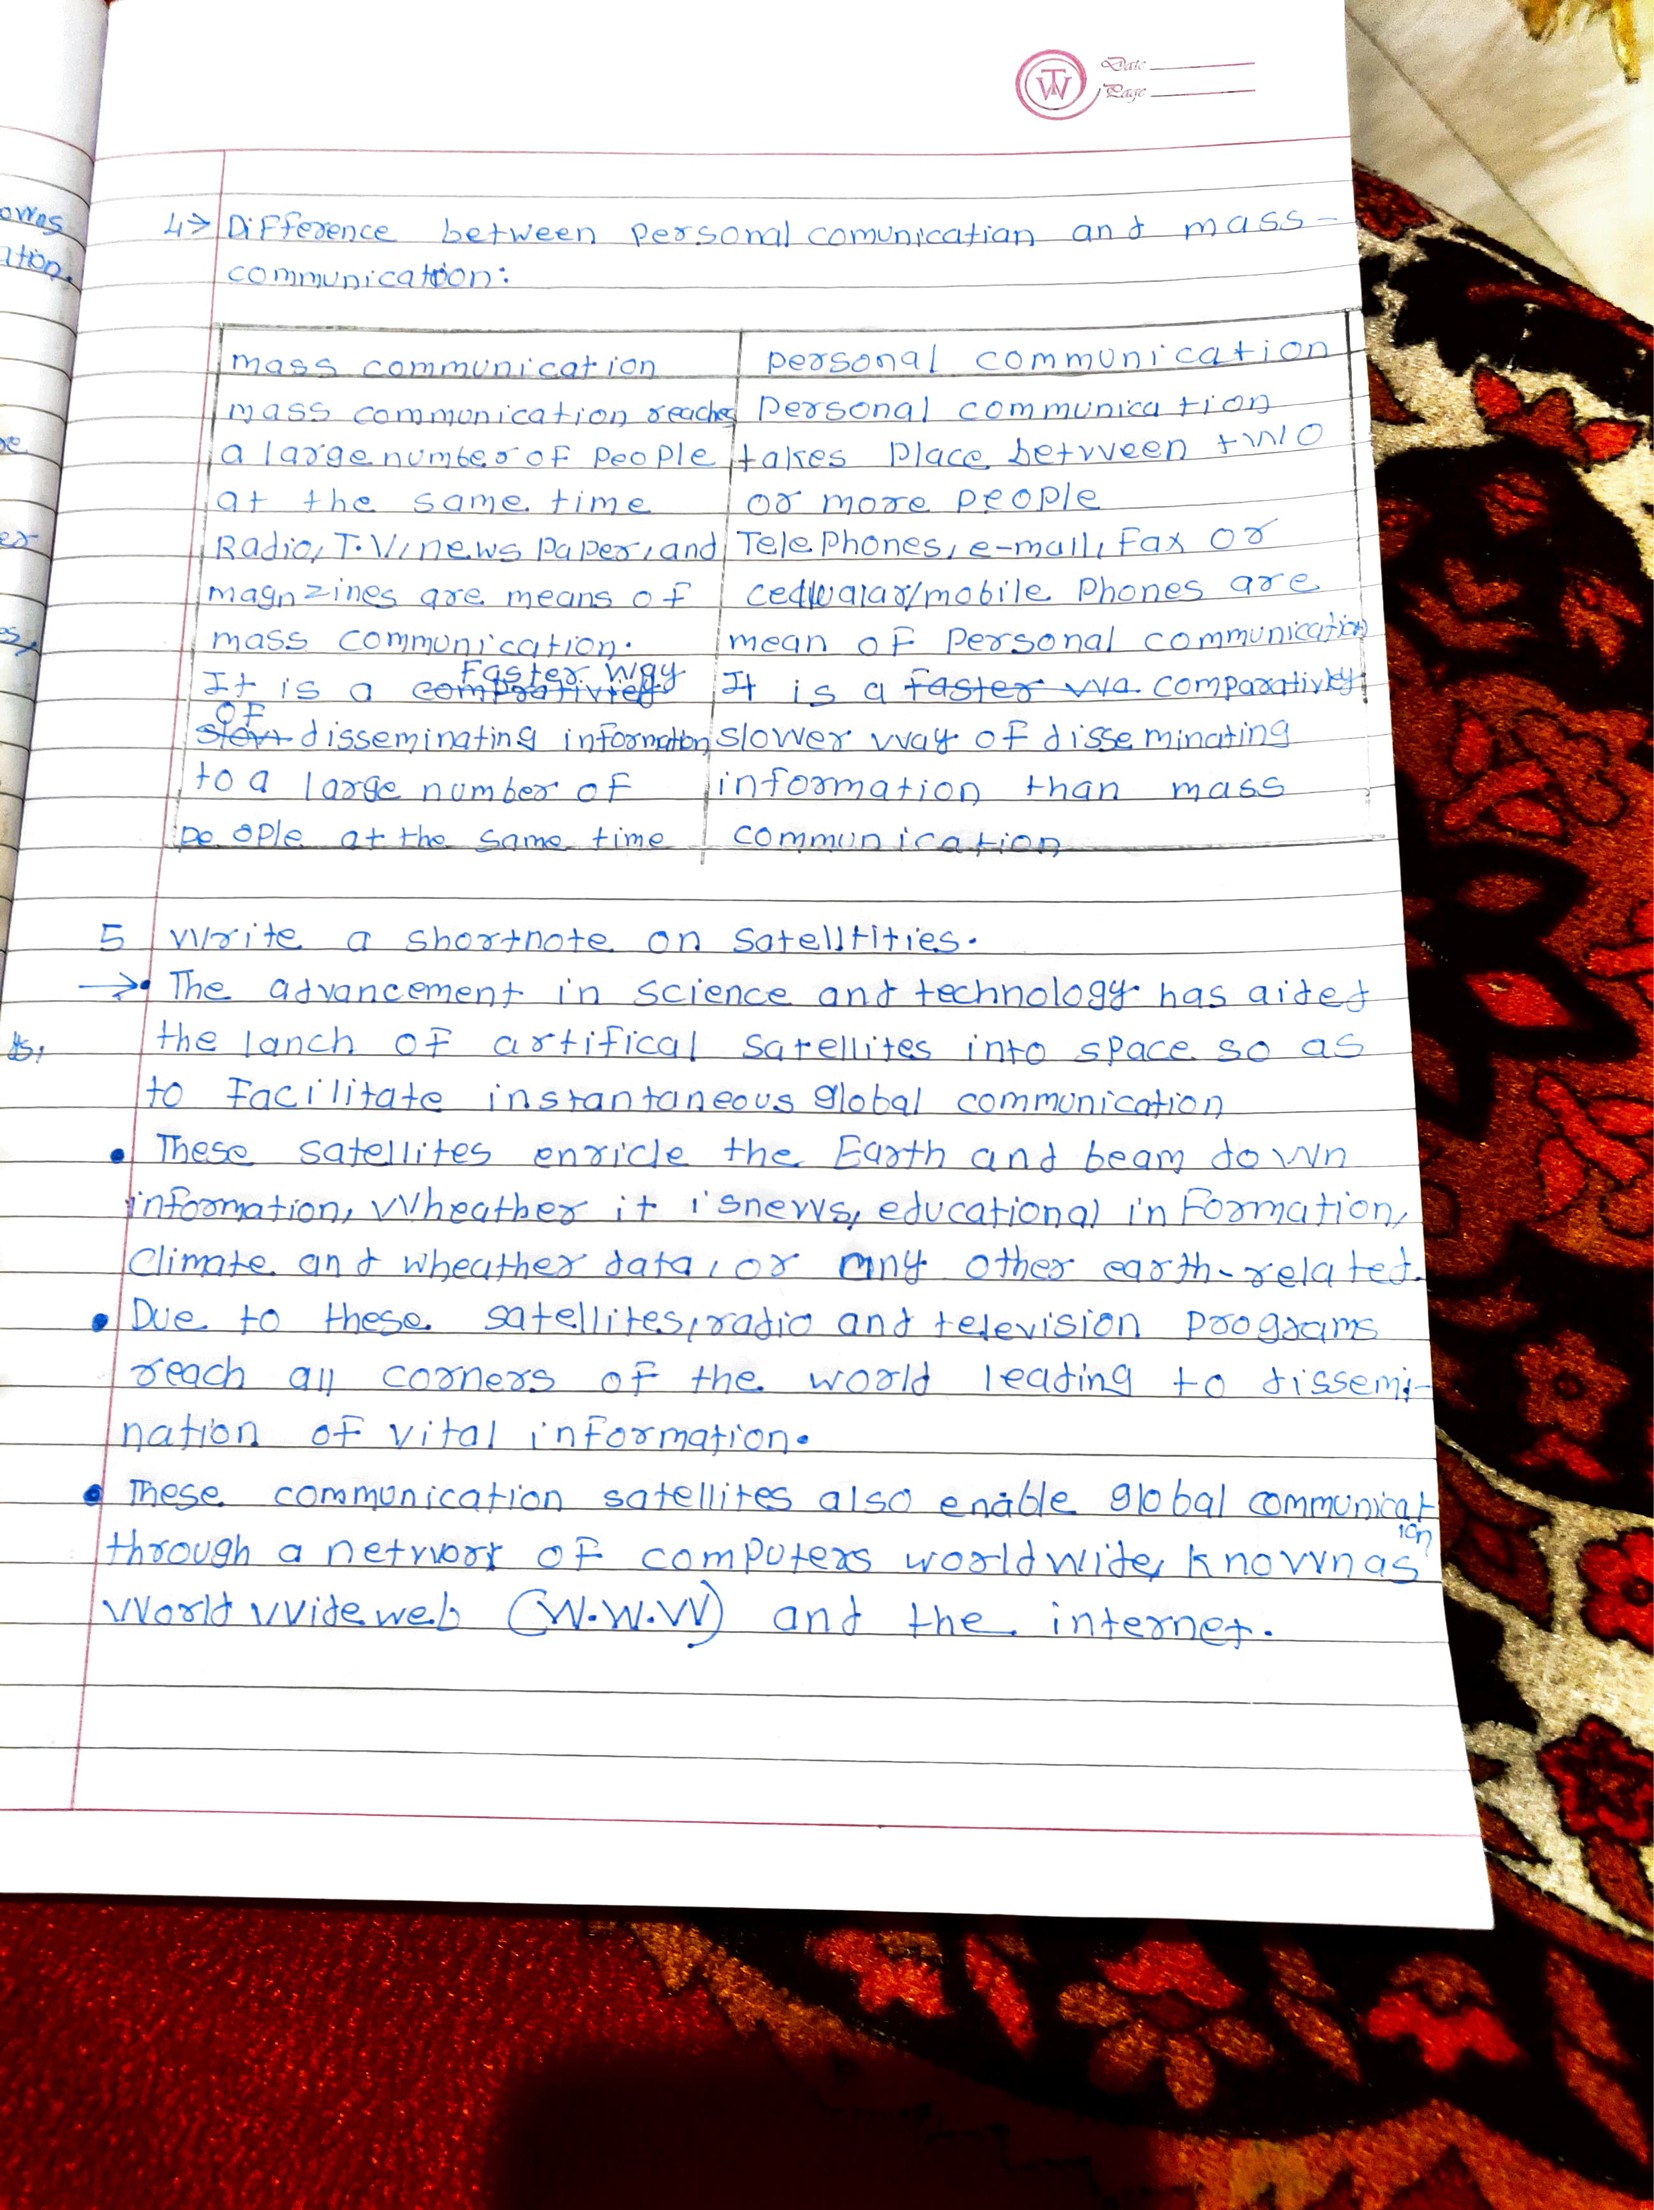 TW
Date
Page
owns
ation.
4> Difference between personal comunication and mass-
communication:
mass communication
mass communication reaches
a large number of people
at the same time
Radio, T.V, news paper, and
magnzines are means of
mass communication.
It is a comprativiely Faster way
slow of disseminating information
to a large number of
people at the same time
personal communication
Personal communication
takes place between two
or more people
Telephones, e-mail, Fax or
mobile Phones are
mean of Personal communication
It is a faster wa comparativley
slower way of disseminating
information than mass
communication
5 Write a shortnote on satelltities.
→ • The advancement in science and technology has aided
the lanch of artifical satellites into space so as
to facilitate instantaneous global communication
• These satellites enricle the Earth and beam down
information, Wheather it is news, educational information,
Climate and wheather data, or any other earth-related.
• Due to these satellites, radio and television programs
reach all corners of the world leading to dissemi-
nation of vital information.
• These communication satellites also enable global communication
through a network of computers worldwide, known as
World wide web (W.W.W) and the internet.